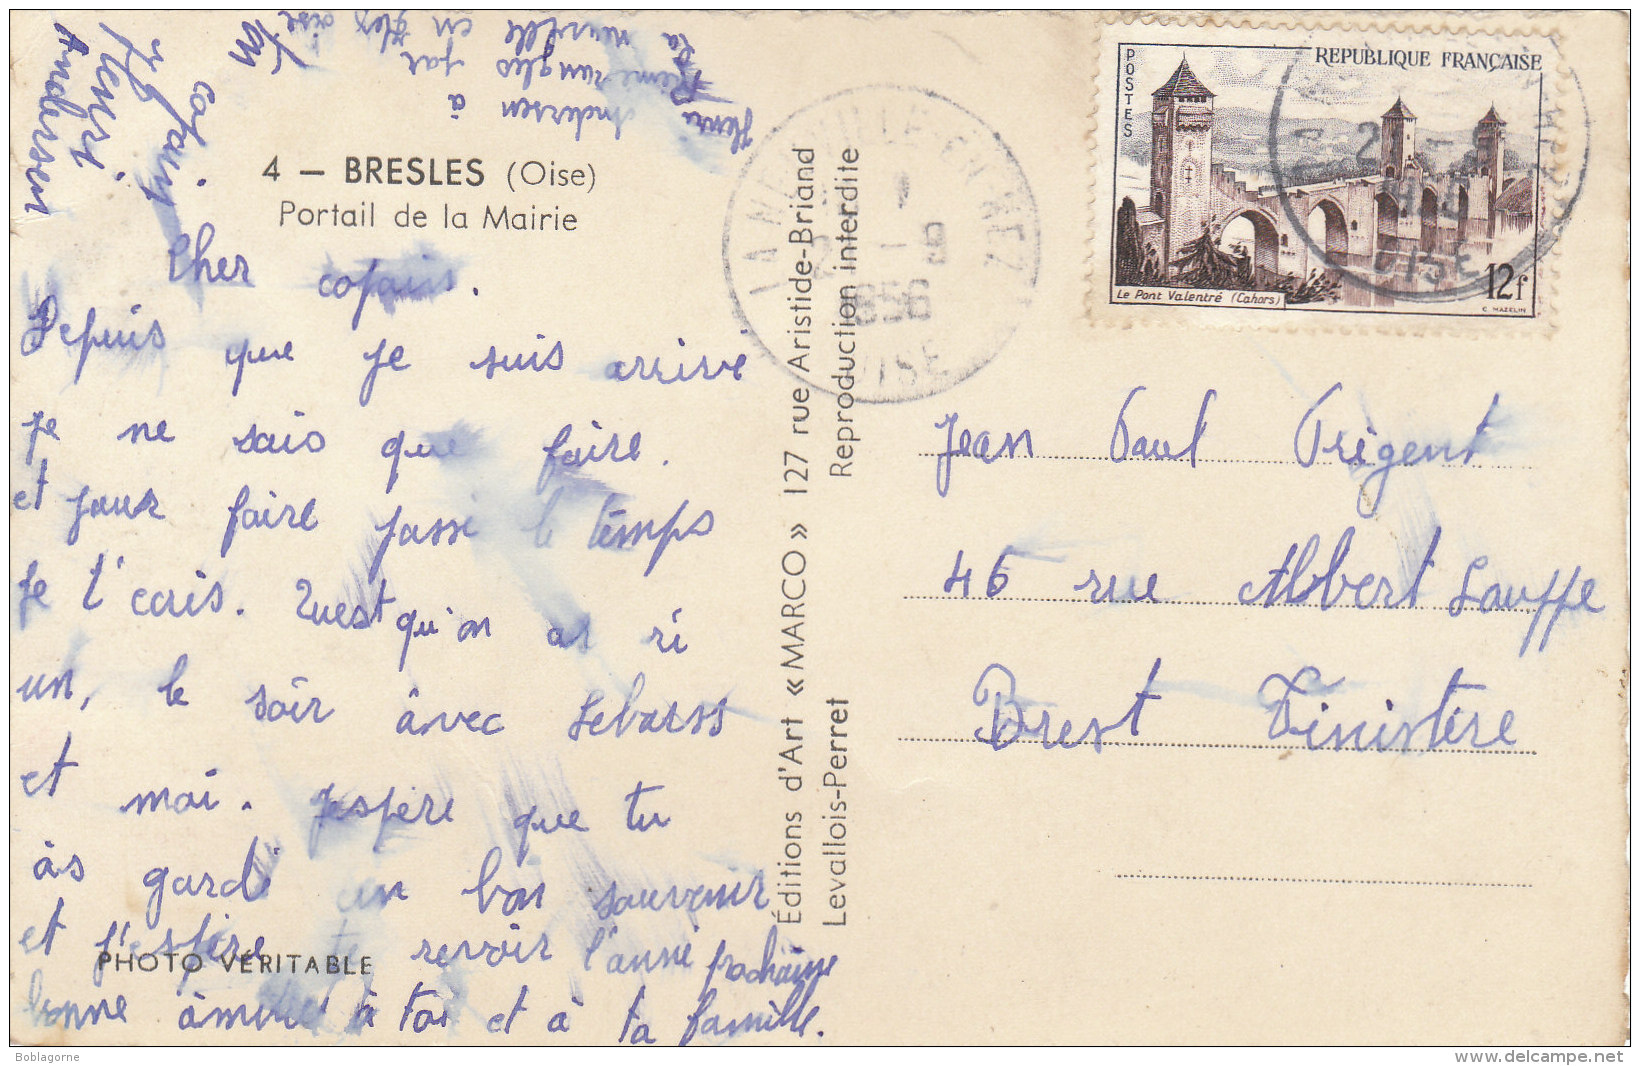 Ton copain
Henri
Andersen
Henri Andersen à
Rémérangles par
La neuville en Hez oise
4 — BRESLES (Oise)
Portail de la Mairie
Cher copain.
Depuis que je suis arrivé
je ne sais que faire.
et pour faire passé le temps
je t'ecris. Quest qu'on as ri
un, le soir avec Lebarss
et moi. J'espère que tu
às gardé un bon souvenir
et j'espère te revoir l'anné prochaine
bonne àmitié à toi et à ta famille.
PHOTO VÉRITABLE
Éditions d'Art « MARCO » 127 rue Aristide-Briand
Levallois-Perret
Reproduction interdite
LA NEUVILLE-EN-HEZ
1956
OISE
POSTES
REPUBLIQUE FRANÇAISE
Le Pont Valentré (Cahors)
12f
C. MAZELIN
OISE
Jean Paul Prigent
46 rue Albert Louppe
Brest Finistère
Boblagorne
www.delcampe.net